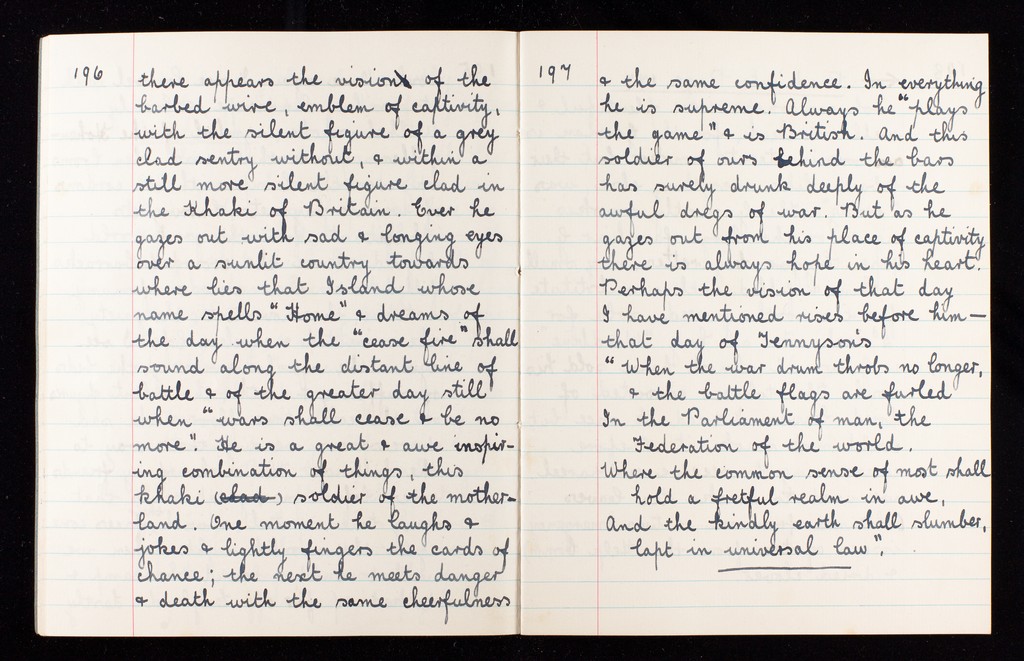 196
there appears the vision of the
barbed wire, emblem of captivity,
with the silent figure of a grey
clad sentry without, & within a
still more silent figure clad in
the Khaki of Britain. Ever he
gazes out with sad & longing eyes
over a sunlit country towards
where lies that Island whose
name spells "Home" & dreams of
the day when the "cease fire" shall
sound along the distant line of
battle & of the greater day still
when "wars shall cease & be no
more". He is a great & awe inspir-
ing combination of things, this
khaki (clad) soldier of the mother-
land. One moment he laughs &
jokes & lightly fingers the cards of
chance; the next he meets danger
& death with the same cheerfulness
197
& the same confidence. In everything
he is supreme. Always he "plays
the game" & is British. And this
soldier of ours behind the bars
has surely drunk deeply of the
awful dregs of war. But as he
gazes out from his place of captivity
there is always hope in his heart.
Perhaps the vision of that day
I have mentioned rises before him—
that day of Tennyson's
"When the war drum throbs no longer,
& the battle flags are furled
In the Parliament of man, the
Federation of the world.
Where the common sense of most shall
hold a fretful realm in awe,
And the kindly earth shall slumber,
lapt in universal law".